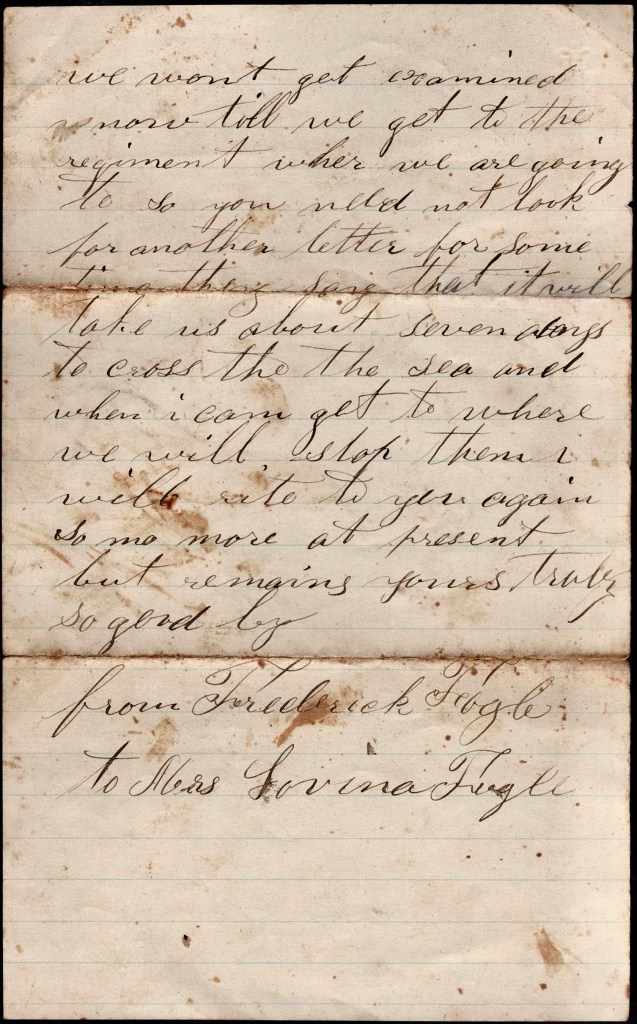 we wont get examined
now till we get to the
regiment wher we are going
to so you need not look
for another letter for some
time they say that it will
take us about seven days
to cross the the sea and
when i cam get to where
we will stop them i
will rite to you again
so mo more at present
but remains yours truly
so good by
from Frederick Fogle
to Mrs Lovina Fogle